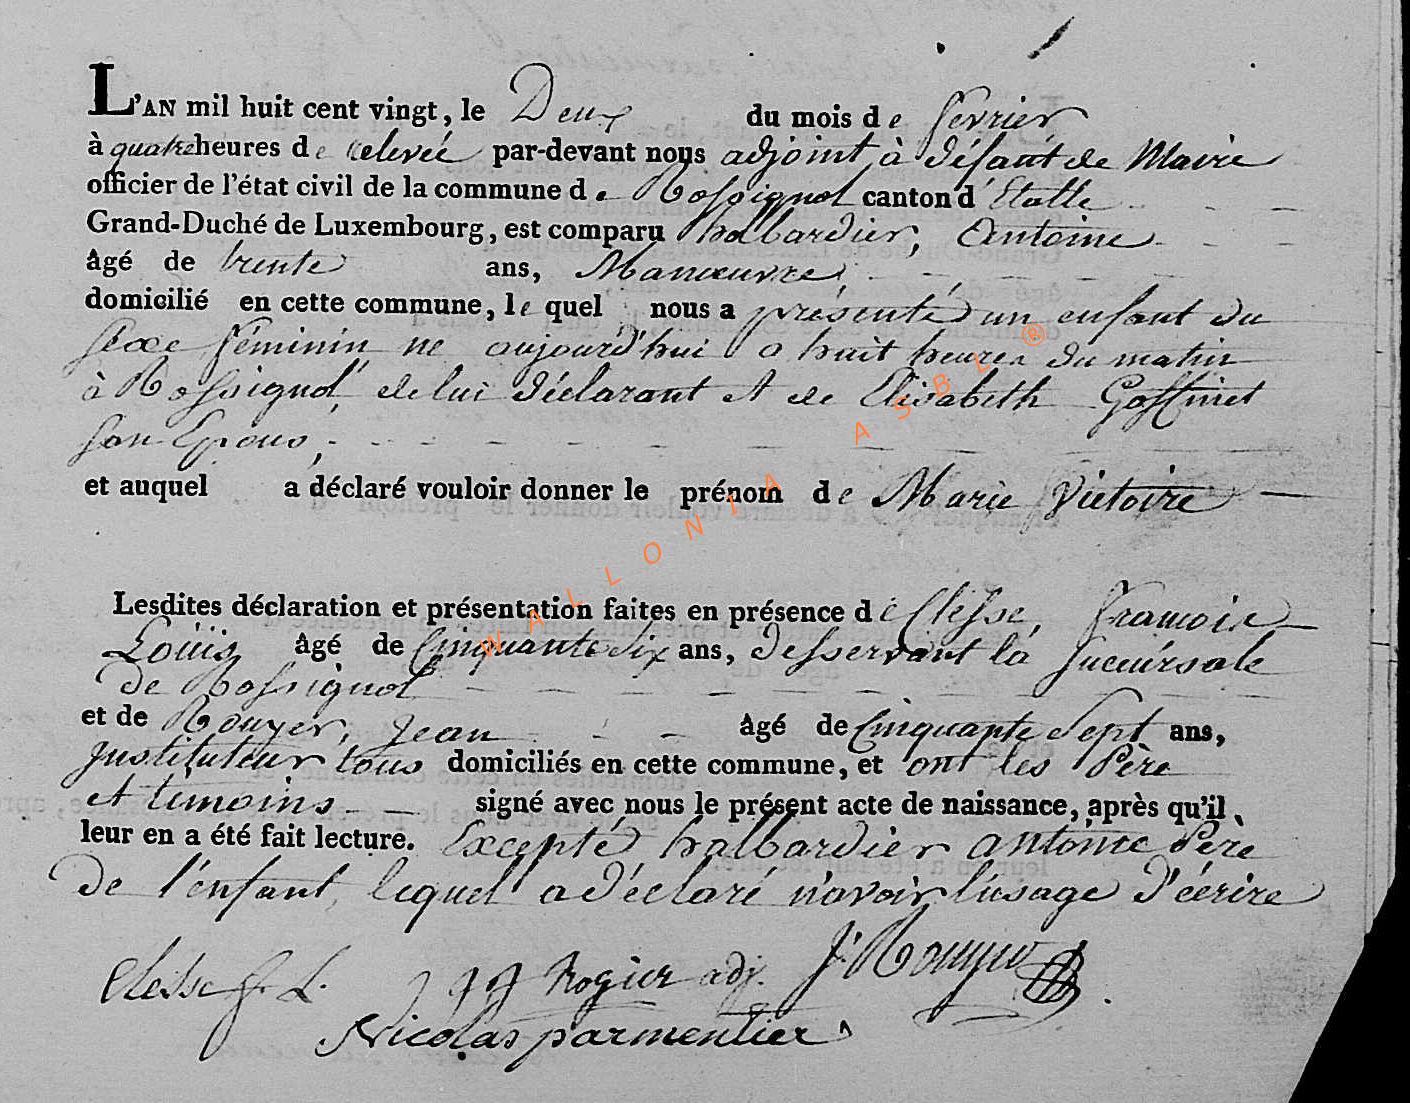 L'AN mil huit cent vingt, le Deux du mois de fevrier
à quatre heures de relevée par-devant nous adjoint à défaut de Maire
officier de l'état civil de la commune de Rossignol canton d'Etalle
Grand-Duché de Luxembourg, est comparu halbardier, Antoine
âgé de trente ans, Manœuvre,
domicilié en cette commune, le quel nous a présenté un enfant du
sexe féminin ne aujourd'hui a huit heures du matin
à Rossignol, de lui déclarant et de Elisabeth Goffinet
son Epous,
et auquel a déclaré vouloir donner le prénom de Marie Victoire
Lesdites déclaration et présentation faites en présence de Clesse, Francois
Loüis âgé de Cinquante six ans, desservant la succursale
de Rossignol
et de Rouyer, Jean âgé de Cinquante Sept ans,
Instituteur tous domiciliés en cette commune, et ont les Père
et témoins signé avec nous le présent acte de naissance, après qu'il
leur en a été fait lecture. Excepté halbardier antoine Père
de l'enfant, lequel a déclaré n'avoir l'usage d'écrire
Clesse f. L. Rogier adj. J. Rouyer
Nicolas parmentier
WALLONIA ASBL ®